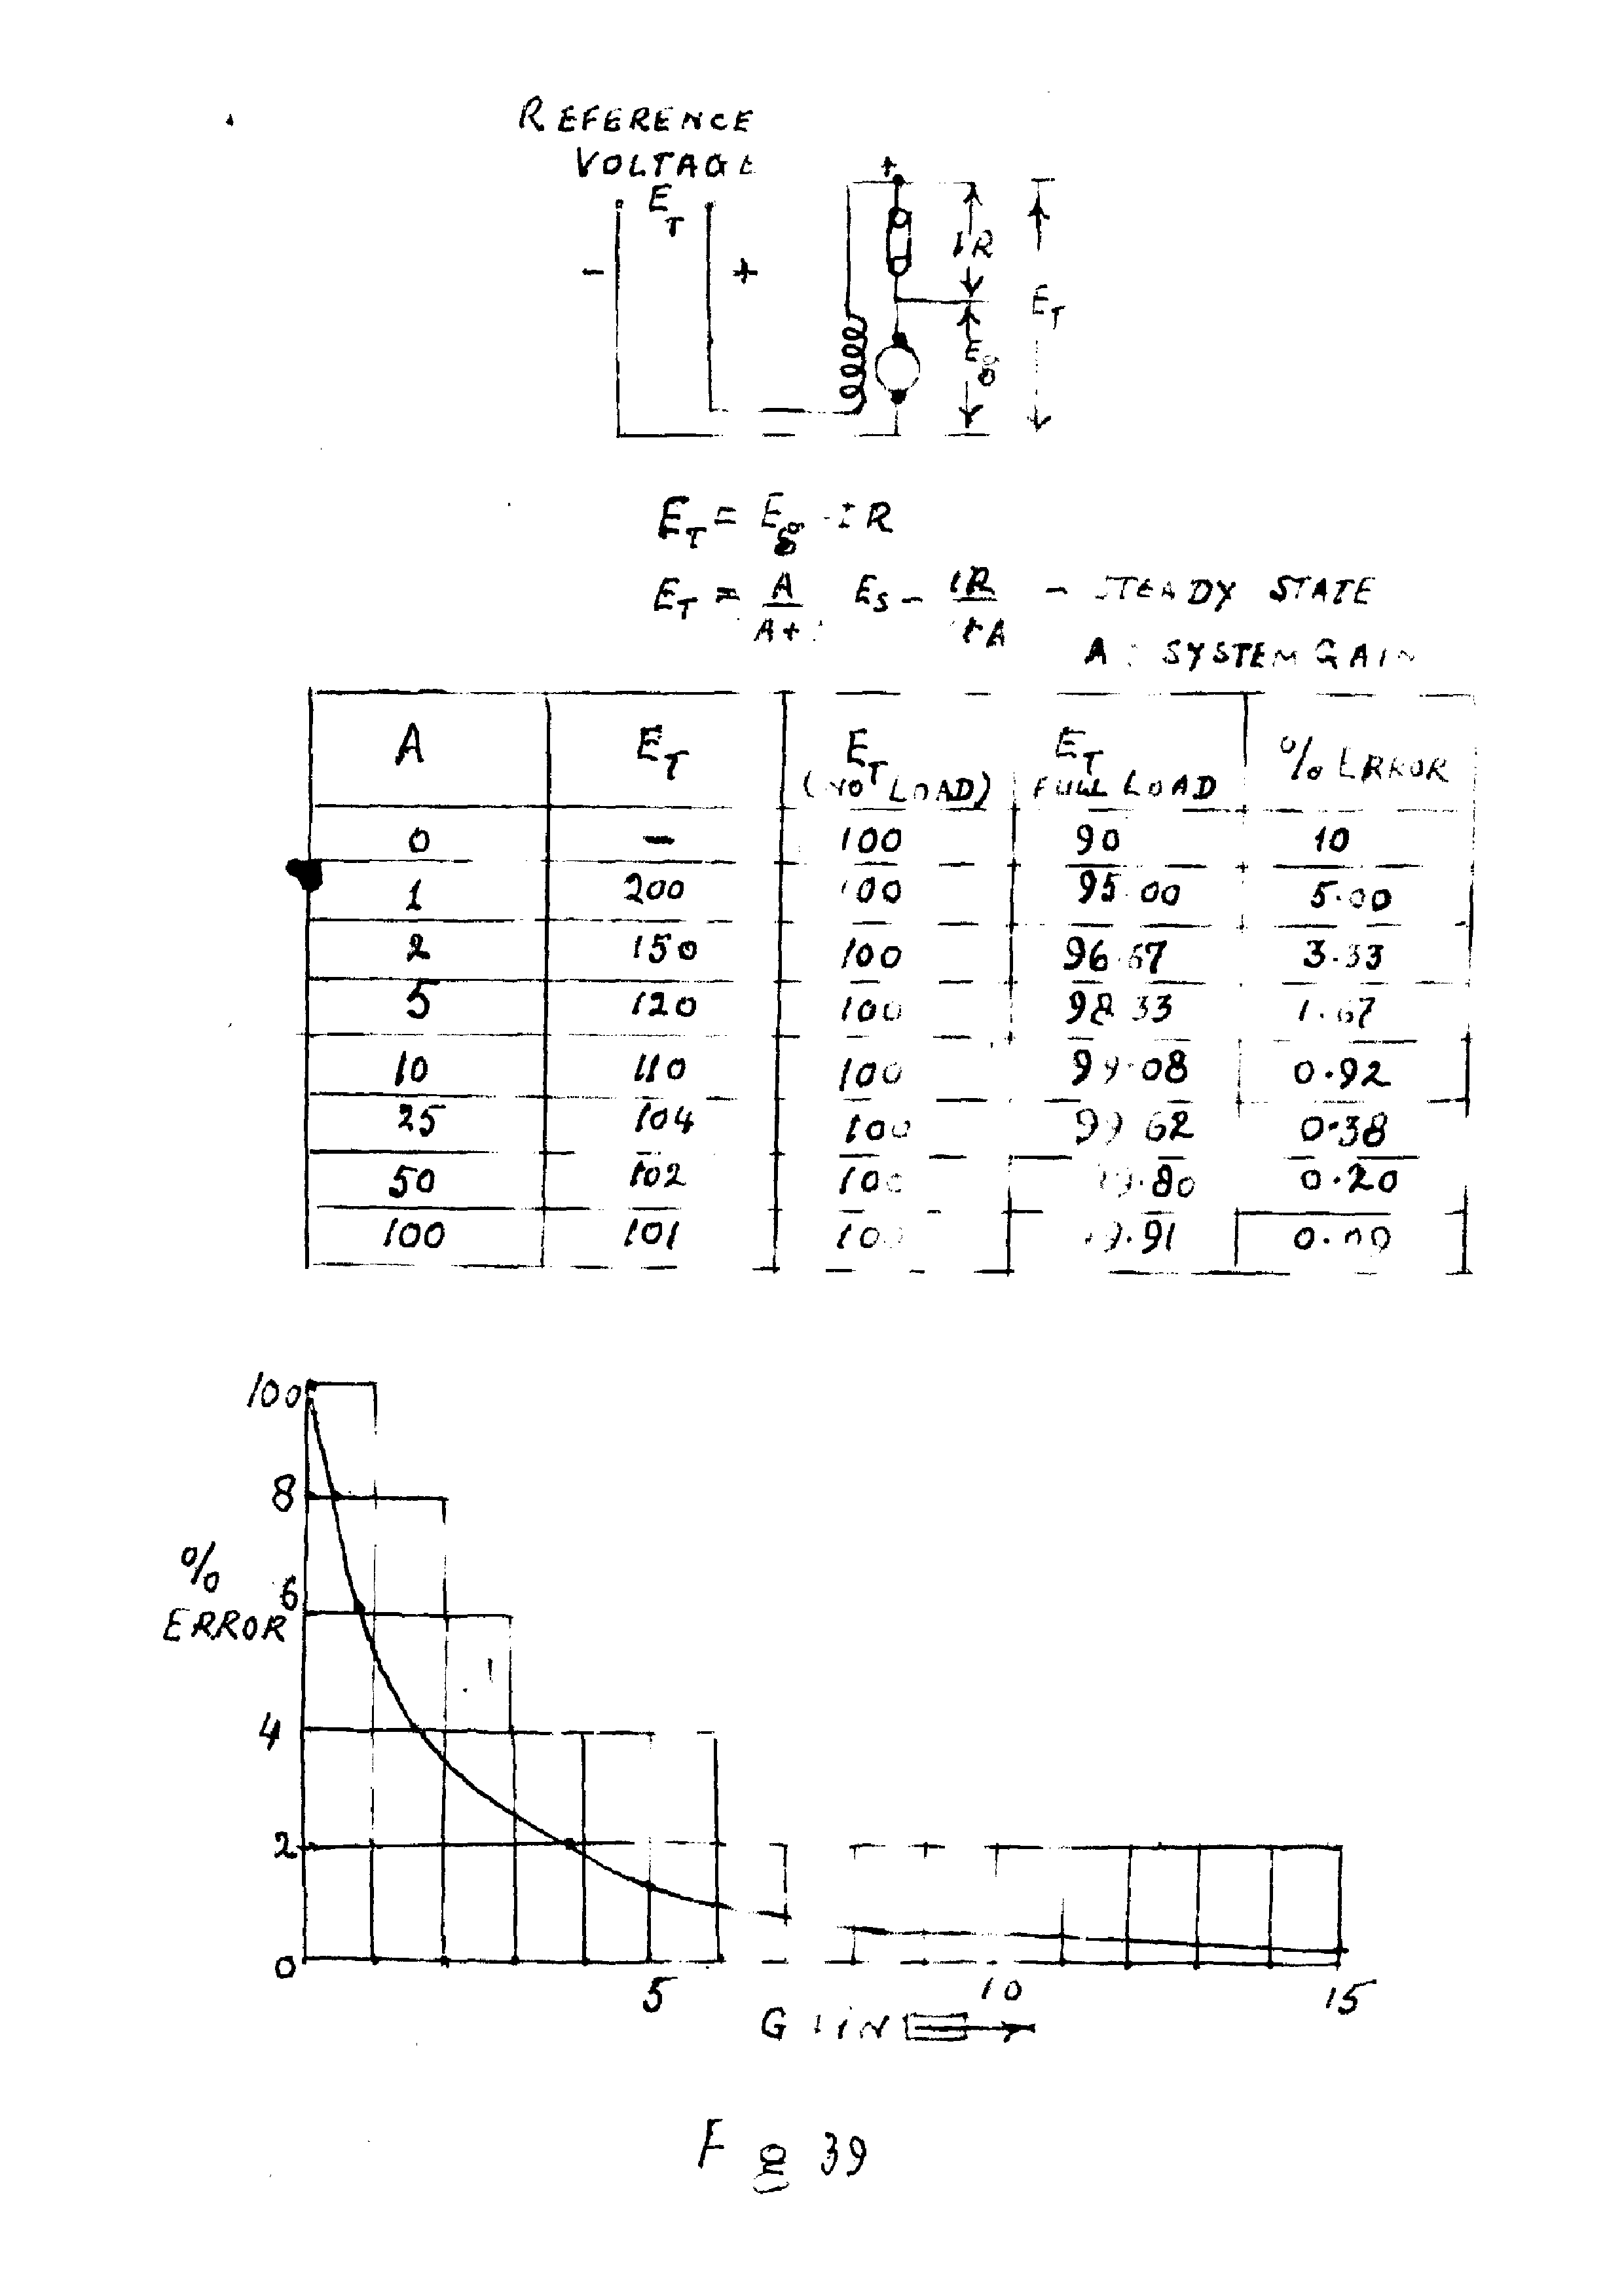 REFERENCE
VOLTAGE
E_T
- +
+
IR
E_T
E_g
E_T = E_g - IR
E_T = A/A+ E_S - IR/+A - STEADY STATE
A : SYSTEM GAIN
A E_T E_T (NO LOAD) E_T FULL LOAD % ERROR
0 - 100 90 10
1 200 100 95.00 5.00
2 150 100 96.67 3.33
5 120 100 98.33 1.67
10 110 100 99.08 0.92
25 104 100 99.62 0.38
50 102 100 99.80 0.20
100 101 100 99.91 0.09
100
8
%
6
ERROR
4
2
0
5 10 15
GAIN
39